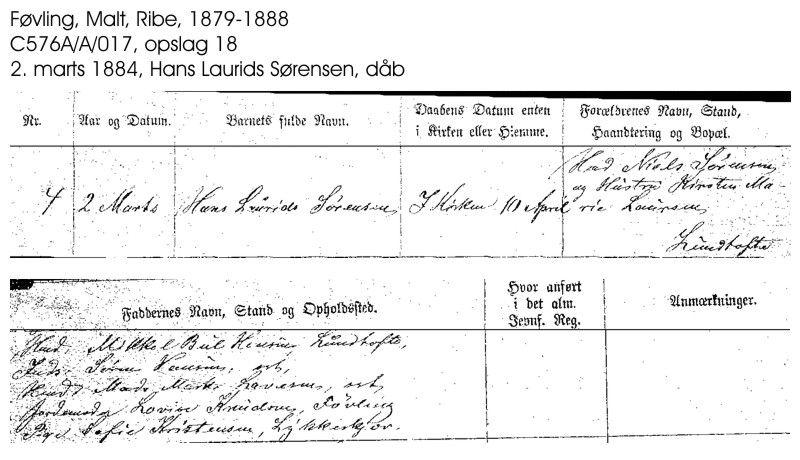 Føvling, Malt, Ribe, 1879-1888
C576A/A/017, opslag 18
2. marts 1884, Hans Laurids Sørensen, dåb
Nr.
Aar og Datum.
Barnets fulde Navn.
Daabens Datum enten
i Kirken eller Hjemme.
Forældrenes Navn, Stand,
Haandtering og Bopæl.
4
2 Marts
Hans Laurids Sørensen
I Kirken 10 April
Hmd Niels Sørensen
og Hustru Kirsten Ma-
rie Laursen
Lundtofte
Faddernes Navn, Stand og Opholdssted.
Hvor anført
i det alm.
Jevnf. Reg.
Anmærkninger.
Hmd. Mikkel Bul Hansen Lundtofte,
Søren
Mads
Knudsen, Føvling
Pige Sofie Kristensen, Lykkeskjær.